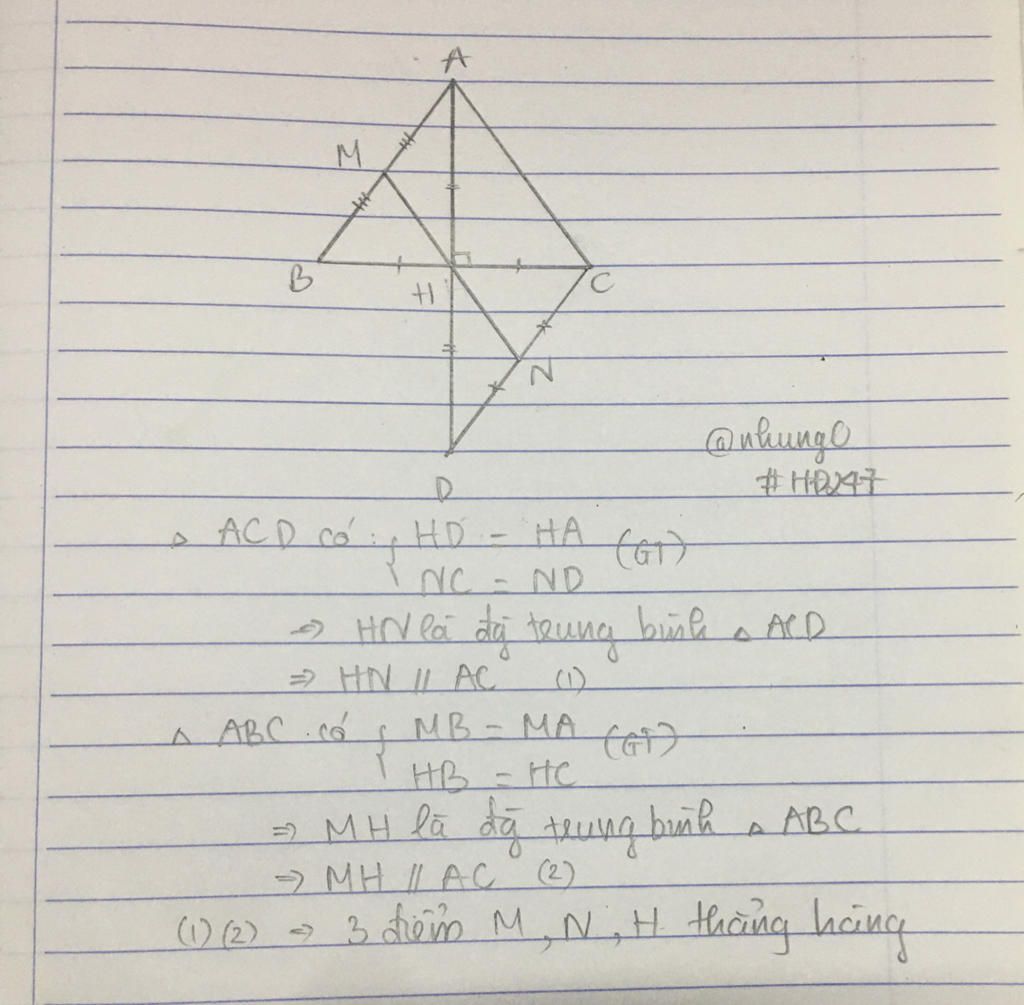 A
M
B
H
C
N
D
@nhung0
#HĐ247
△ ACD có : { HD = HA (GT)
NC = ND
⇒ HN là đg trung bình △ ACD
⇒ HN // AC (1)
△ ABC có { MB = MA (GT)
HB = HC
⇒ MH là đg trung bình △ ABC
⇒ MH // AC (2)
(1) (2) ⇒ 3 điểm M, N, H thẳng hàng